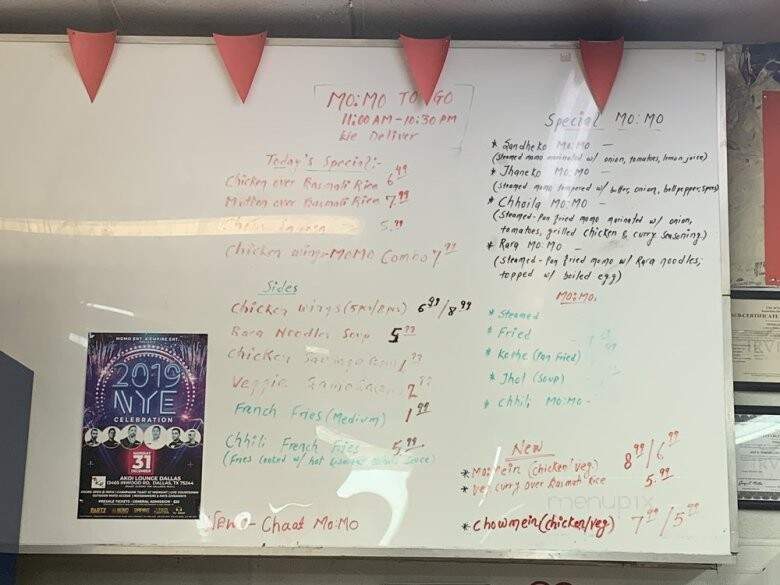 MO:MO TO GO
11:00 AM - 10:30 PM
We Deliver
Today's Special:-
Chicken over Basmati Rice 6.49
Mutton over Basmati Rice 7.99
5.99
Chicken wings-MOMO Combo 7.99
Sides
Chicken wings (5pcs/8pcs) 6.99/8.99
Rara Noodles Soup 5.99
Chicken
Veggie 2.99
French Fries (Medium) 1.99
Chhili French Fries 5.99
(Fries cooked w/ hot sauce)
New - Chaat MO:MO
Special MO:MO
* Sandheko MO:MO -
(Steamed momo marinated w/ onion, tomatoes, lemon juice)
* Jhaneko MO:MO -
(Steamed momo tempered w/ butter, onion, bellpepper,
* Chhoila MO:MO -
(Steamed-Pan fried momo marinated w/ onion,
tomatoes, grilled chicken & curry seasoning)
* Rara MO:MO -
(Steamed-Pan fried momo w/ Rara noodles,
topped w/ boiled egg)
MO:MO:
* Steamed
* Fried
* Kothe (Pan fried)
* Jhol (Soup)
* Chhili MO:MO -
New
(chicken/veg) 8.99/6.99
* Veg curry over Basmati Rice 5.99
* Chowmein (chicken/veg) 7.99/5.99
MOMO ENT & EMPIRE ENT.
2019
NYE
CELEBRATION
MONDAY
31
DECEMBER
AKOI LOUNGE DALLAS
DALLAS, TX 75244
menupix